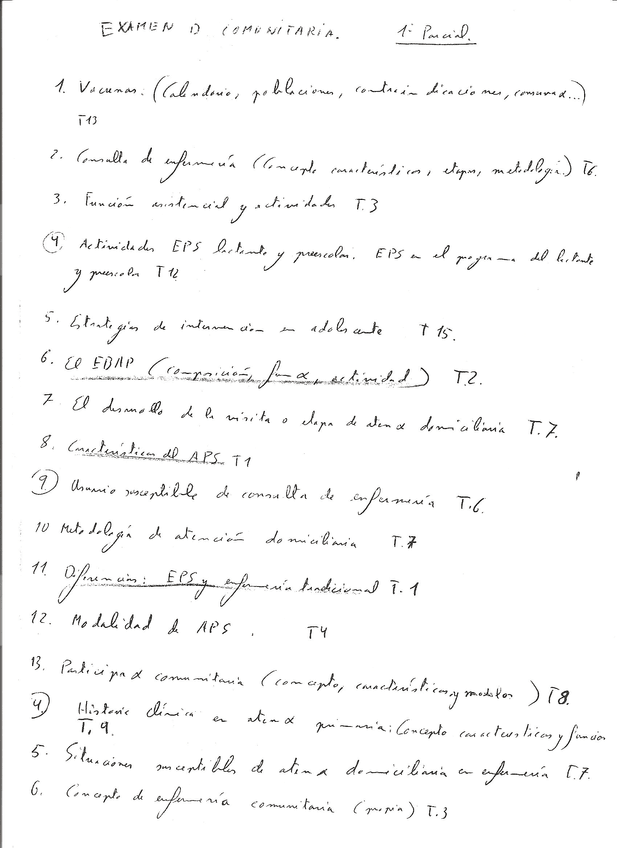 EXAMEN D COMUNITARIA. 1º Parcial.
1. Vacunas. (Calendario, poblaciones, contraindicaciones, conserva α...)
T13
2. Consulta de enfermería (Concepto características, etapas, metodología) T6.
3. Función asistencial y actividades T.3
4. Actividades EPS lactante y preescolar. EPS en el programa del lactante
y preescolar T12
5. Estrategias de intervención en adolescente T 15.
6. El EBAP (composición, fun α, actividad) T.2.
7 El desarrollo de la visita o etapa de aten α domiciliaria T.7.
8. Características del APS T1
9 Usuario susceptible de consulta de enfermería T.6.
10 Metodología de atención domiciliaria T.7
11. Diferencias: EPS y enfermería tradicional T.1
12. Modalidad de APS. T4
13. Participa α comunitaria (concepto, características, y modelos) T8.
4) Historia clínica en aten α primaria: Concepto características y función
T. 9.
5. Situaciones susceptibles de aten α domiciliaria en enfermería T.7.
6. Concepto de enfermería comunitaria (propia) T.3